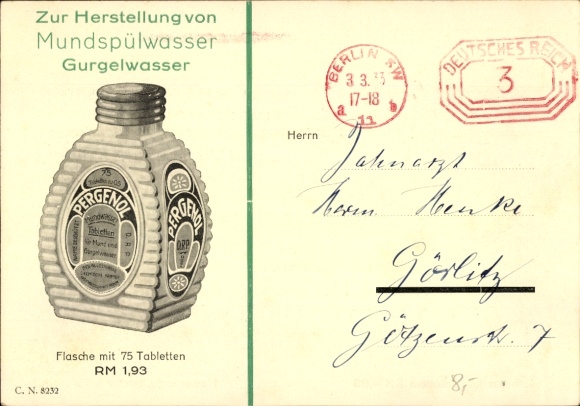 Zur Herstellung von
Mundspülwasser
Gurgelwasser
75
Tabletten zu 0,5
PERGENOL
Mundwasser
Tabletten
für Mund und
Gurgelwasser
PERGENOL
Flasche mit 75 Tabletten
RM 1,93
C. N. 8232
BERLIN SW
3.3.33
17-18
a 11 b
DEUTSCHES REICH
3
Herrn
Zahnarzt
Herm. Henke
Görlitz
Götzenstr. 7
8,-